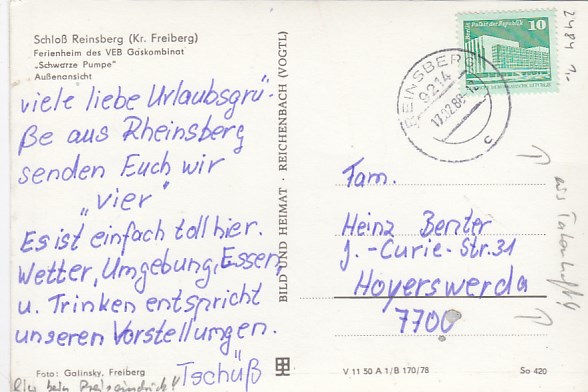 Schloß Reinsberg (Kr. Freiberg)
Ferienheim des VEB Gaskombinat
„Schwarze Pumpe"
Außenansicht
viele liebe Urlaubsgrü-
ße aus Rheinsberg
senden Euch wir
„vier"
Es ist einfach toll hier.
Wetter, Umgebung, Essen,
u. Trinken entspricht
unseren Vorstellungen.
Tschüß
Foto: Galinsky, Freiberg
BILD UND HEIMAT · REICHENBACH (VOGTL)
Palast der Republik 10
REINSBERG
9214
17.02.88
c
2484
Fam.
Heinz Benter
J.-Curie-Str. 31
Hoyerswerda
7700
V 11 50 A 1/B 170/78
So 420